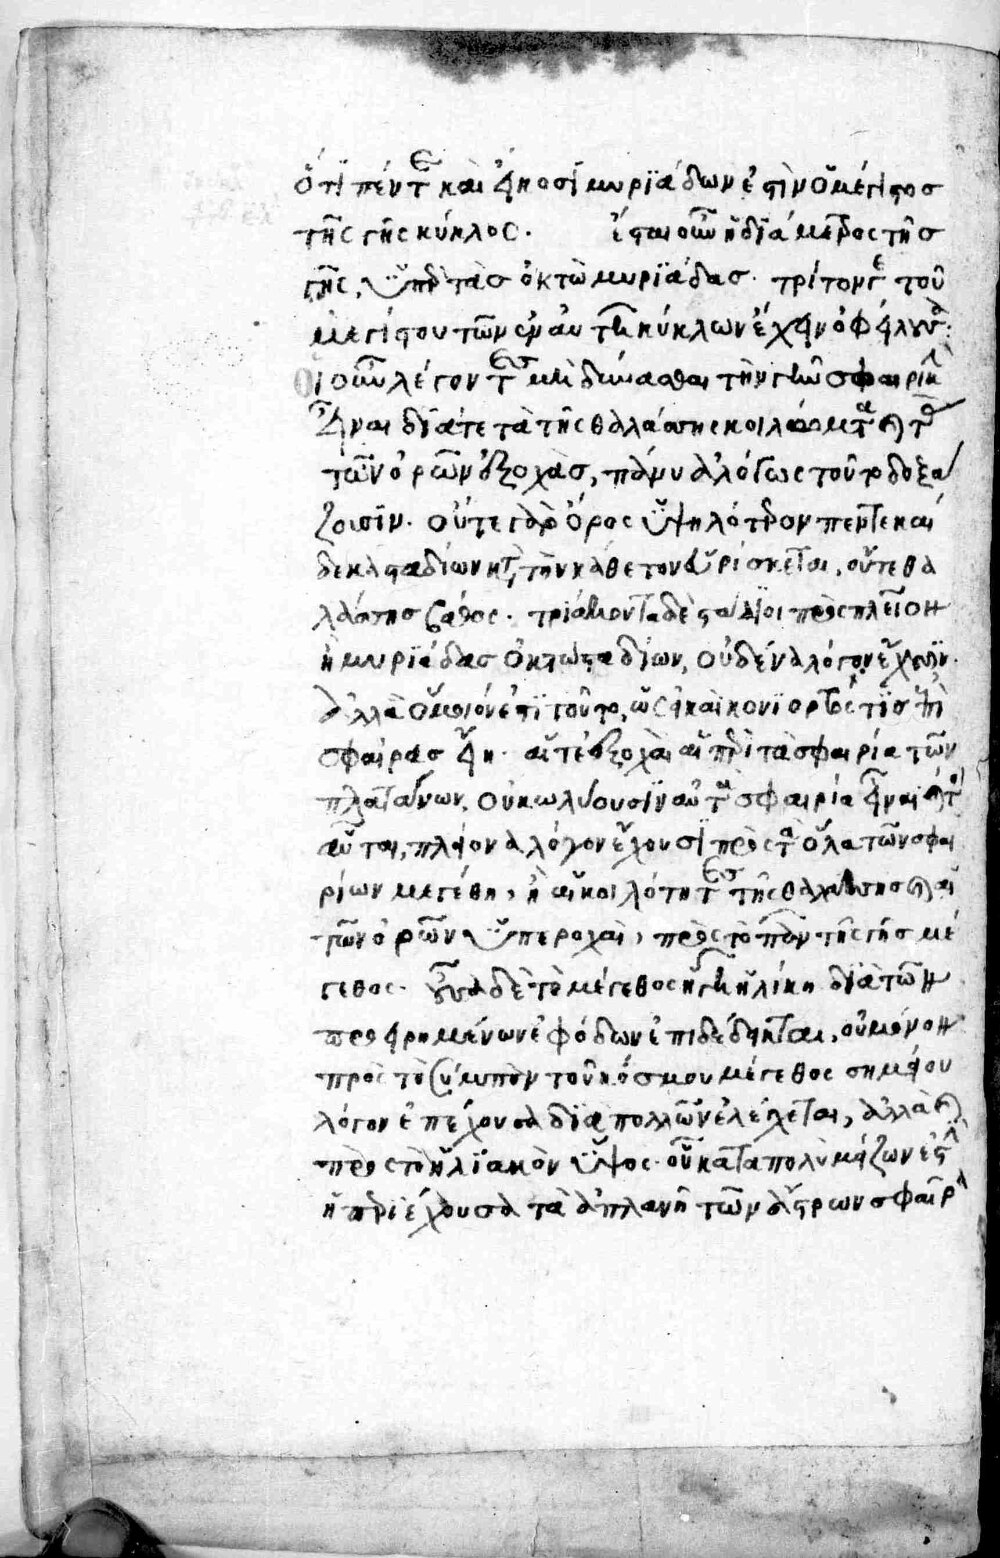 ὅτι πέντε καὶ εἴκοσι μυριάδων ἐστὶν ὁ μέγιστος
τῆς γῆς κύκλος. ἔσται οὖν ἡ διάμετρος τῆς
γῆς, ὑπὲρ τὰς ὀκτὼ μυριάδας. τρίτον τοῦ
μεγίστου τῶν ἐν αὐτῇ κύκλων ἔχειν ὀφείλουσα.
οἱ οὖν λέγοντες μὴ δύνασθαι τὴν γῆν σφαιρικὴν
εἶναι διά τε τὰ τῆς θαλάσσης κοιλώματα καὶ τὰς
τῶν ὀρῶν ἐξοχάς, πάνυ ἀλόγως τοῦτο δοξά
ζουσιν. οὔτε γὰρ ὄρος ὑψηλότερον πεντεκαί
δεκα σταδίων κατὰ τὴν κάθετον εὑρίσκεται, οὔτε θα
λάσσης βάθος. τριάκοντα δὲ στάδιοι πρὸς πλεῖον
ἢ μυριάδας ὀκτὼ σταδίων, οὐδένα λόγον ἔχουσιν.
ἀλλὰ ὅμοιόν ἐστι τοῦτο, ὡς εἰ καὶ κονιορτός τις ἐπὶ
σφαίρας εἴη. αἵ τε ἐξοχαὶ αἱ περὶ τὰ σφαιρία τῶν
πλατάνων, οὐ κωλύουσιν αὐτὰ σφαιρία εἶναι καίτοι
αὗται, πλείονα λόγον ἔχουσι πρὸς τὰ ὅλα τῶν σφαι
ρίων μεγέθη, ἢ αἱ κοιλότητες τῆς θαλάσσης καὶ αἱ
τῶν ὀρῶν ὑπεροχαὶ, πρὸς τὸ πᾶν τῆς γῆς μέ
γεθος. οὖσα δὲ τὸ μέγεθος ἡ γῆ ἡλίκη διὰ τῶν
προειρημένων ἐφόδων ἐπιδέδεικται, οὐ μόνον
πρὸς τὸ σύμπαν τοῦ κόσμου μέγεθος σημείου
λόγον ἐπέχουσα διὰ πολλῶν ἐλέγχεται, ἀλλὰ καὶ
πρὸς τὸ ἡλιακὸν ὕψος. οὗ κατὰ πολὺ μείζων ἐστὶν
ἡ περιέχουσα τὰ ἀπλανῆ τῶν ἄστρων σφαῖρα